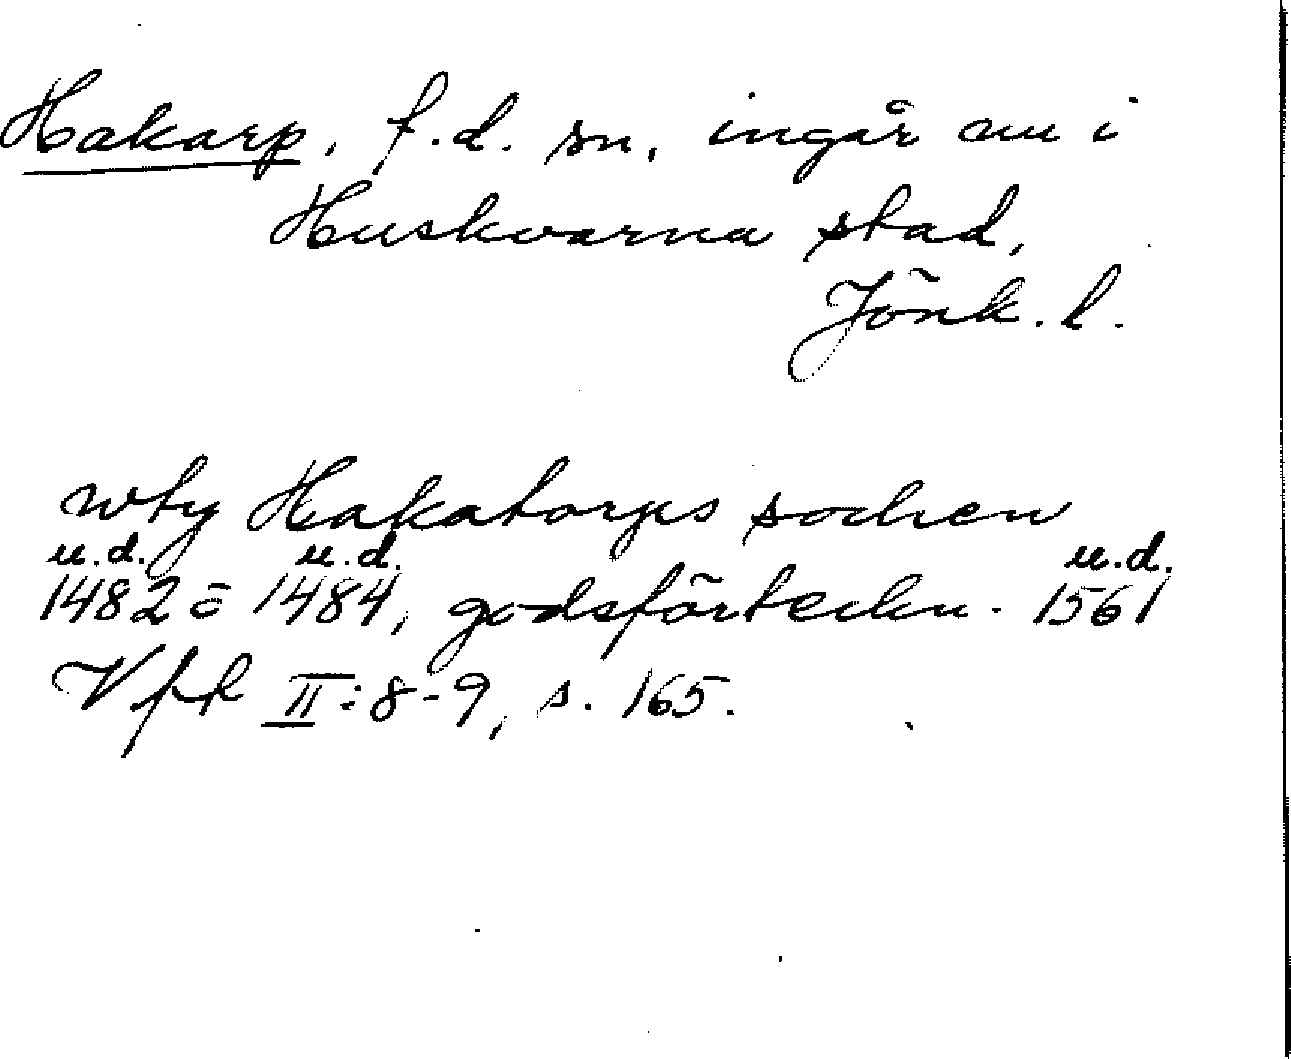 Hakarp, f.d. sn, ingår nu i
Huskvarna stad,
Jönk. l.
wty Hakatorps sochen
u.d. u.d. u.d.
1482 = 1484, godsförteckn. 1561
Vfk II:8-9, s. 165.